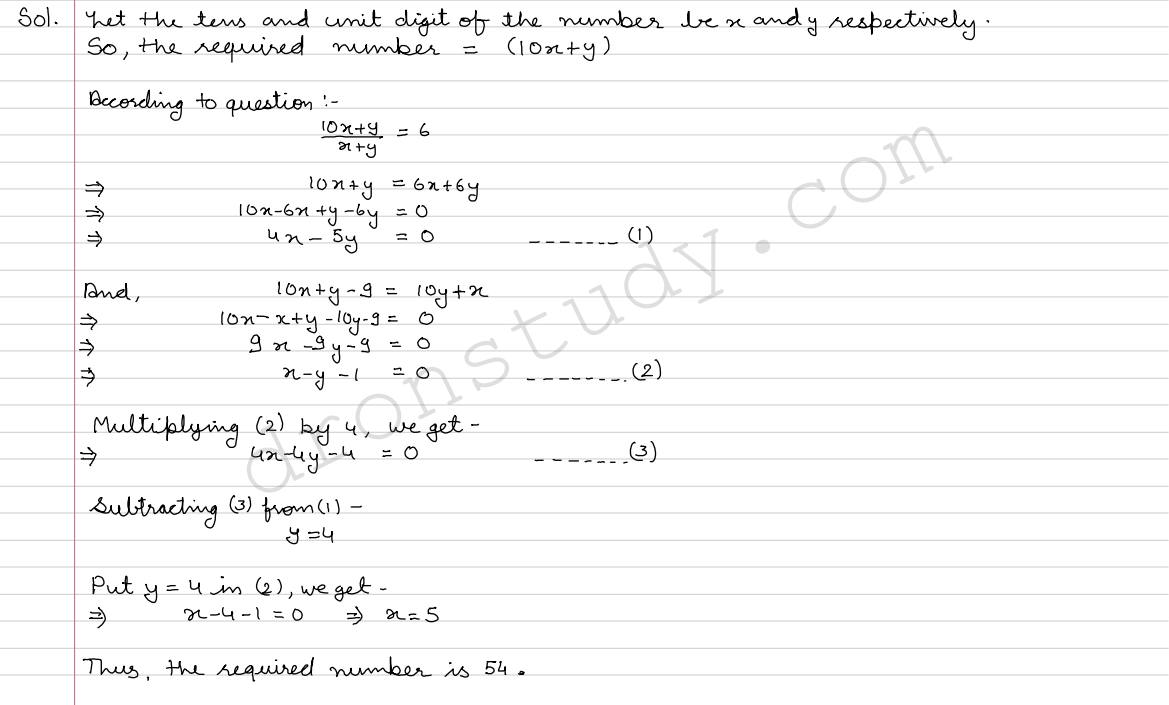 Sol. Let the tens and unit digit of the number be x and y respectively.
So, the required number = (10x+y)
According to question :-
10x+y
x+y
= 6
⇒ 10x+y = 6x+6y
⇒ 10x-6x+y-6y = 0
⇒ 4x-5y = 0 ------- (1)
And, 10x+y-9 = 10y+x
⇒ 10x-x+y-10y-9 = 0
⇒ 9x-9y-9 = 0
⇒ x-y-1 = 0 ------- (2)
Multiplying (2) by 4, we get -
⇒ 4x-4y-4 = 0 ------- (3)
Subtracting (3) from (1) -
y=4
Put y = 4 in (2), we get -
⇒ x-4-1=0 ⇒ x=5
Thus, the required number is 54.
dronstudy.com